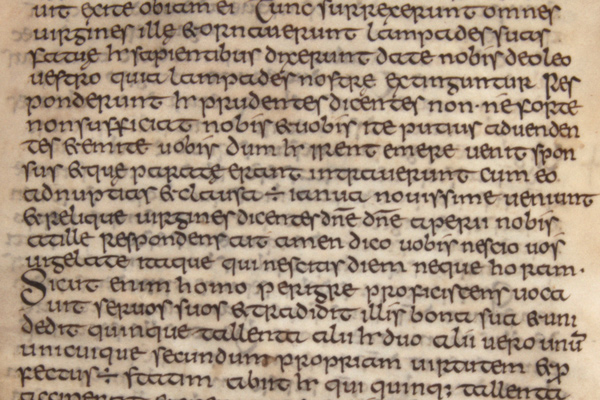 uit exite obiam ei Tunc surrexerunt omnes
uirgines ille & ornauerunt lampades suas
fatue hr sapientibus dixerunt date nobis deoleo
uestro quia lampades nostre extinguntur Res
ponderunt hr prudentes dicentes non·ne forte
nonsufficiat nobis &uobis ite putius aduenden
tes &emite uobis dum hr irent emere uenit spon
sus &que parate erant intrauerunt cum eo
adnuptias &clausa ÷ ianua nouissime ueniunt
&relique uirgines dicentes dñe dñe aperii nobis
atille respondens ait amen dico uobis nescio uos
uigelate itaque quinescitis diem neque horam·
Sicut enim homo perigre proficiscens uoca
uit seruos suos &tradidit illis bona sua &uni
dedit quinque tallenta alii hr duo alii uero unū
unicuique secundum propriam uirtutem &p
fectus ÷ statim abiit hr qui quinq; tallenta